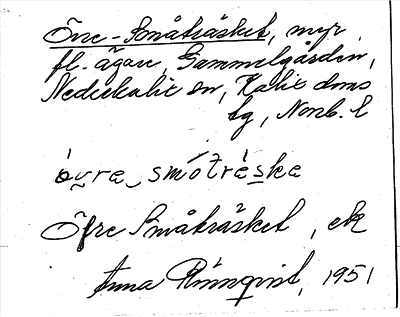 Övre-Småträsket, myr
fl. ägare, Gammelgården,
Nederkalix sn, Kalix dms
tg, Norrb. l
övre smótréske
Öfre Småträsket, ek
Anna Rönnqvist, 1951